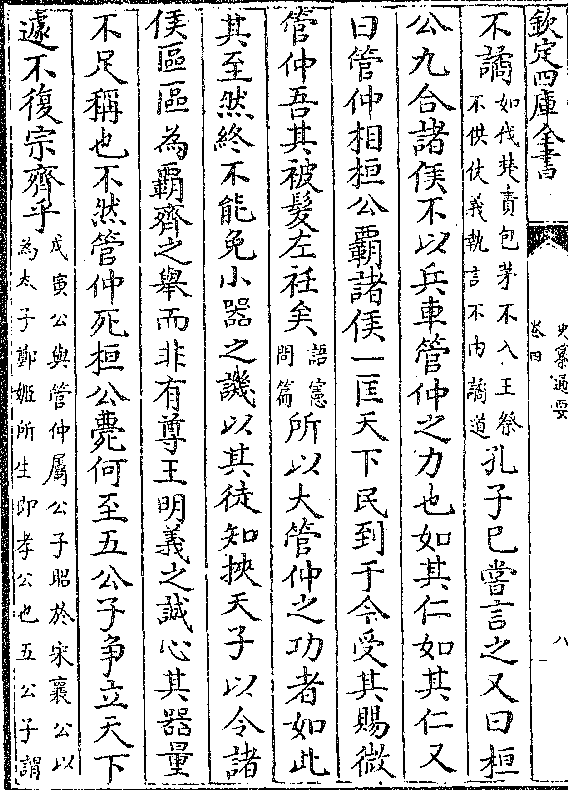 欽定四庫全書
史纂通要
卷四
八
不譎如伐楚責包茅不入王祭
不供仗義執言不由譎道孔子已嘗言之又曰桓
公九合諸侯不以兵車管仲之力也如其仁如其仁又
曰管仲相桓公霸諸侯一匡天下民到于今受其賜微
管仲吾其被髮左衽矣語憲
問篇所以大管仲之功者如此
其至然終不能免小器之譏以其徒知挾天子以令諸
侯區區為霸齊之舉而非有尊王明義之誠心其器量
不足稱也不然管仲死桓公薨何至五公子争立天下
遽不復宗齊乎戊寅公與管仲屬公子昭於宋襄公以
為太子鄭姬所生即孝公也五公子謂